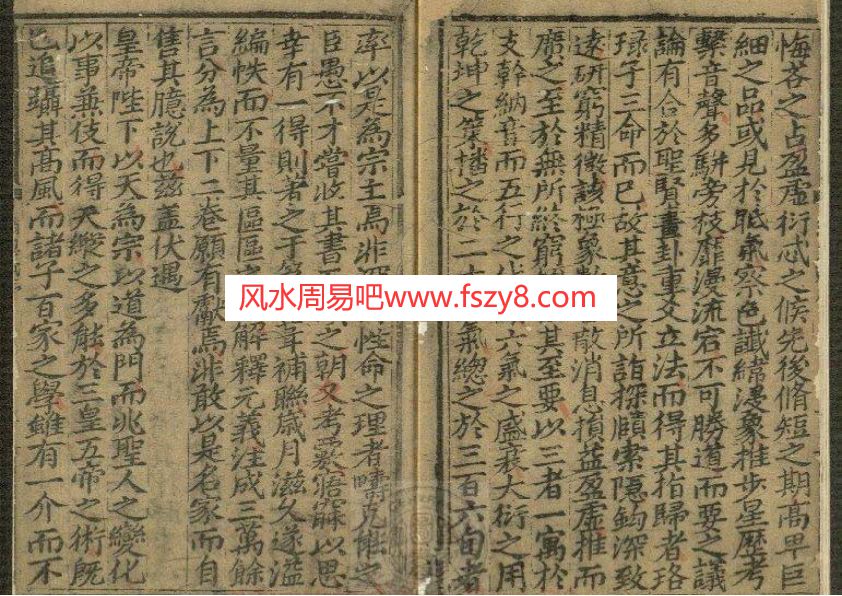 悔吝之占盈虛衍忒之候先後脩短之期高卑巨
細之品或見於眂氣察色讖緯浸象推步星歷考
擊音聲多駢旁枝靡漫流宕不可勝道而要之議
論有合於聖賢畫卦重爻立法而得其指歸者珞
琭子三命而已故其意之所詣探賾索隱鈎深致
遠研窮精微該極象數散消息損益盈虛推而
廣之至於無所終窮其至要以三者一寓於
支幹納音而五行之六氣之盛衰大衍之用
乾坤之策播之於二十氣總之於三百六旬者
率以是為宗主焉非性命之理者疇克能之
臣愚不才嘗收其書之朝又考覈寤寐以思
幸有一得則書之于補聯歲月滋久遂溢
編帙而不量其區區解釋元義注成三萬餘
言分為上下二卷願有獻焉非敢以是名家而自
售其臆說也茲蓋伏遇
皇帝陛下以天為宗以道為門而兆聖人之變化
以事兼伎而得天縱之多能於三皇五帝之術既
已追躡其高風而諸子百家之學雖有一介而不
风水周易吧www.fszy8.com